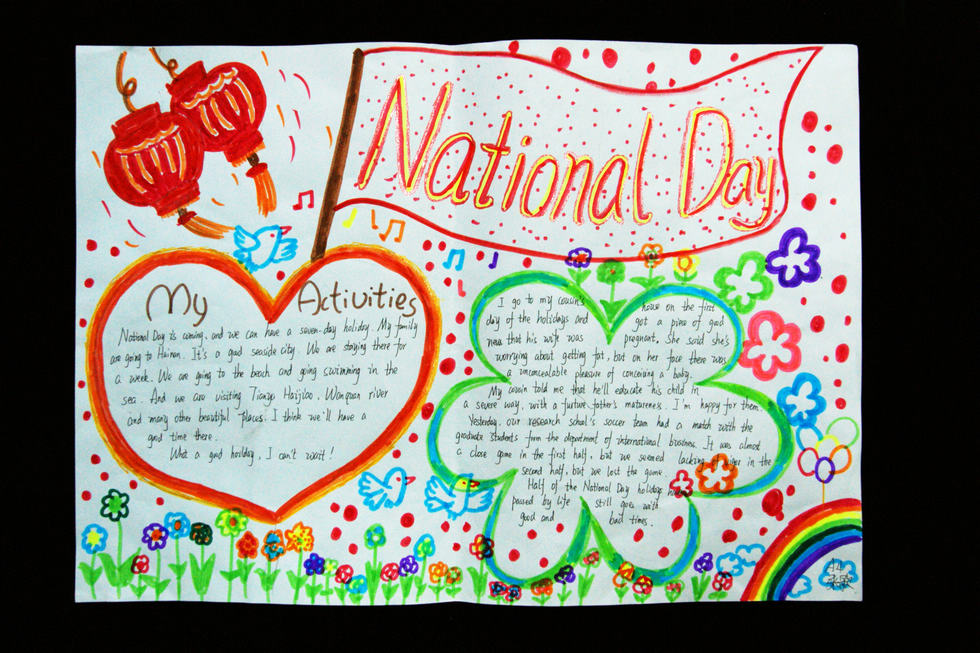 National Day
My Activities
National Day is coming, and we can have a seven-day holiday. My family
are going to Hainan. It's a good seaside city. We are staying there for
a week. We are going to the beach and going swimming in the
sea. And we are visiting Tianya Haijiao, Wanquan river
and many other beautiful places. I think we'll have a
good time there.
What a good holiday, I can't wait!
I go to my cousin's house on the first
day of the holidays and got a piece of good
news that his wife was pregnant. She said she's
worrying about getting fat, but on her face there was
a unconcealable pleasure of conceiving a baby.
My cousin told me that he'll educate his child in
a severe way, with a furture father's matureness. I'm happy for them.
Yesterday, our research school's soccer team had a match with the
graduate students form the department of international business. It was almost
a close game in the first half, but we seemed lacking of in the
second half, but we lost the game.
Half of the National Day holidays
passed by life still goes with
good and bad times.